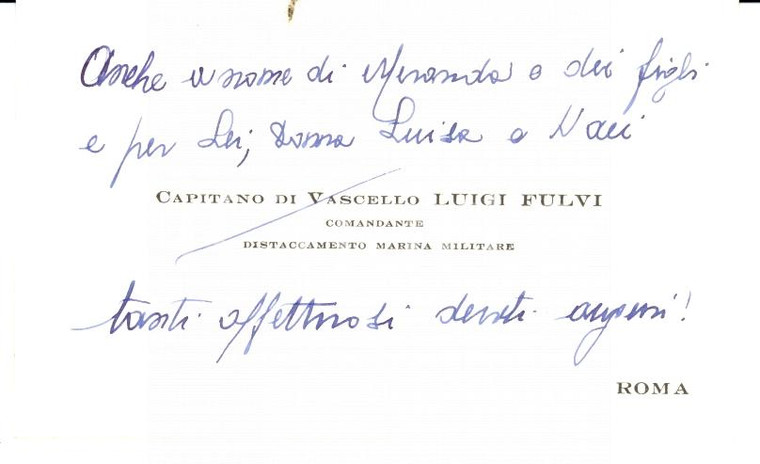 Anche a nome di Miranda e dei figli
e per Lei, Donna Luisa e
CAPITANO DI VASCELLO LUIGI FULVI
COMANDANTE
DISTACCAMENTO MARINA MILITARE
tanti affettuosi devoti auguri!
ROMA